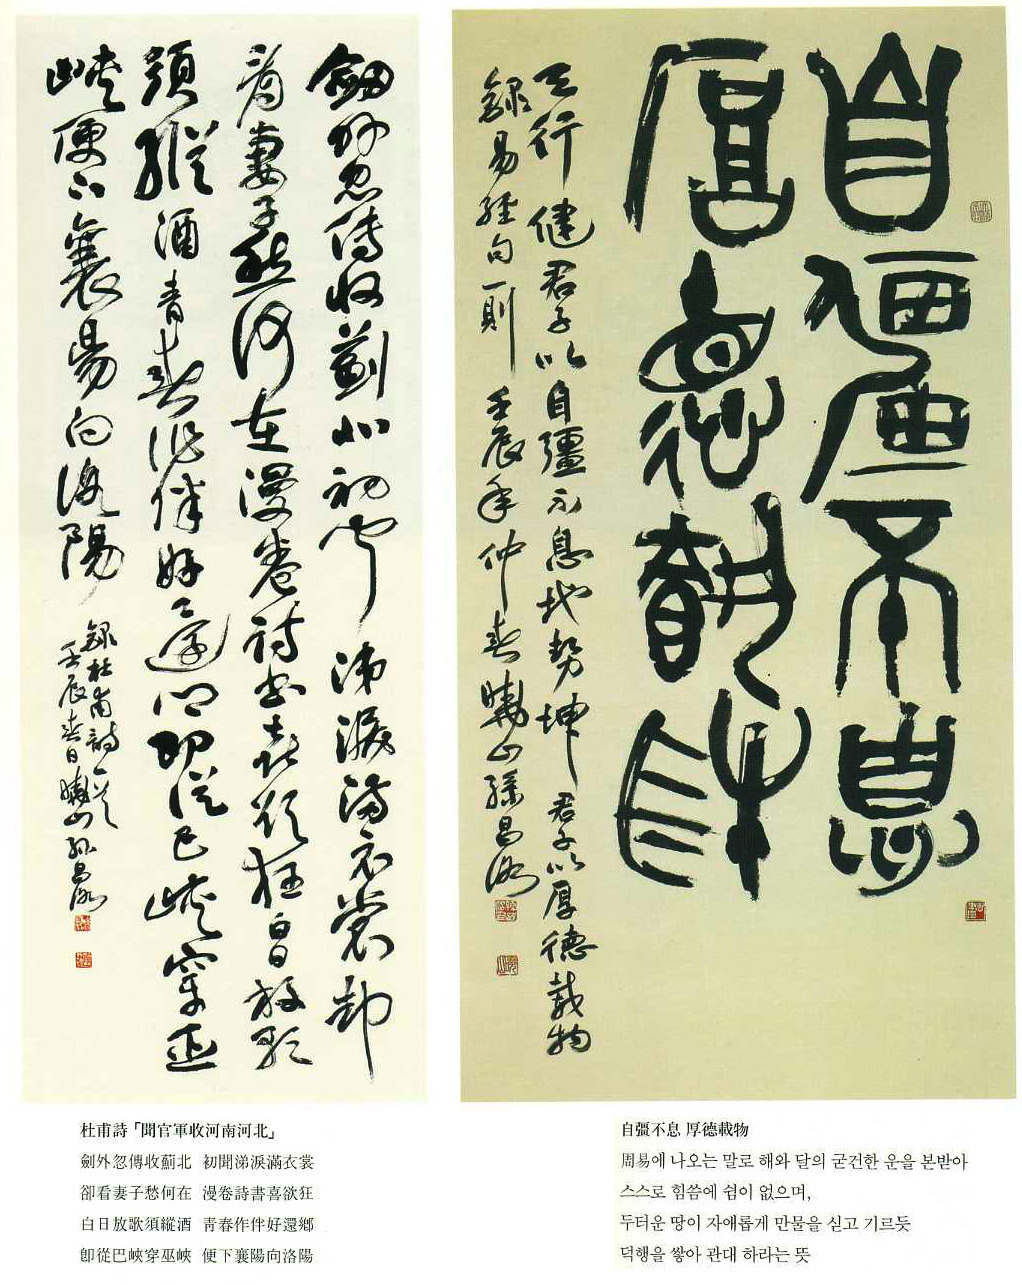 劒外忽傳收薊北初聞涕淚滿衣裳却
看妻子愁何在漫卷詩書喜欲狂白日放歌
須縱酒青春作伴好還鄉即從巴峽穿巫
峽便下襄陽向洛陽
錄杜甫詩一首
壬辰春日曉山孫昌
杜甫詩「聞官軍收河南河北」
劍外忽傳收薊北 初聞涕淚滿衣裳
卻看妻子愁何在 漫卷詩書喜欲狂
白日放歌須縱酒 靑春作伴好還鄉
卽從巴峽穿巫峽 便下襄陽向洛陽
自彊不息
厚德載物
天行健君子以自彊不息地勢坤君子以厚德載物
錄易經句一則壬辰年仲春曉山孫昌
自彊不息 厚德載物
周易에 나오는 말로 해와 달의 굳건한 운을 본받아
스스로 힘씀에 쉼이 없으며,
두터운 땅이 자애롭게 만물을 싣고 기르듯
덕행을 쌓아 관대 하라는 뜻